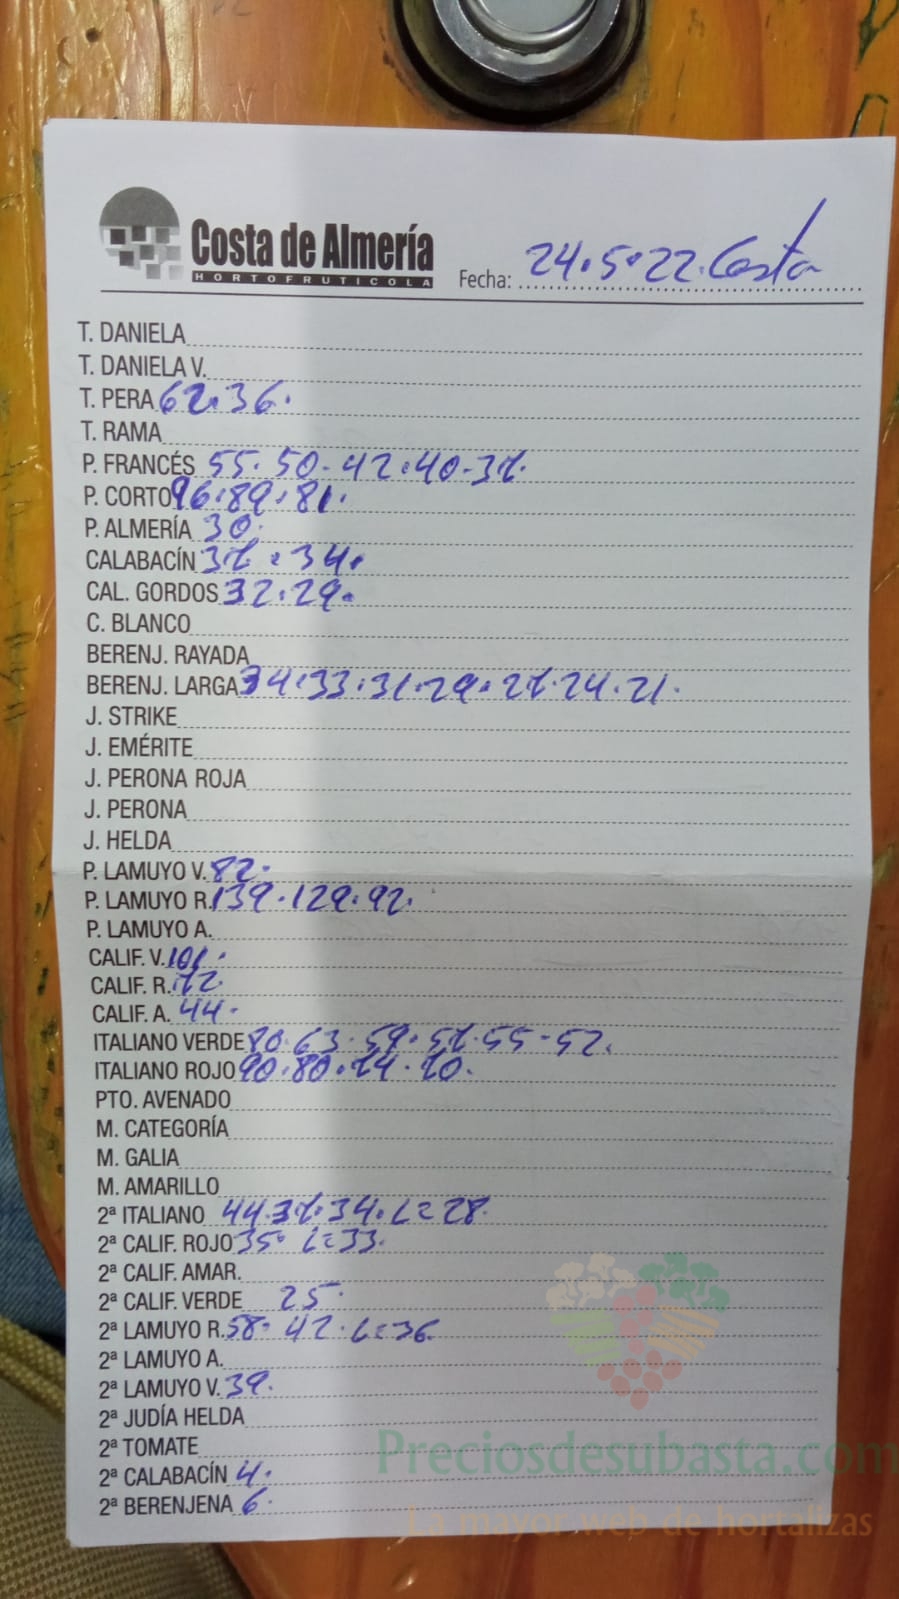 Costa de Almería
HORTOFRUTICOLA
Fecha: 24.5.22. Costa
T. DANIELA
T. DANIELA V.
T. PERA 62.36.
T. RAMA
P. FRANCÉS 55.50.42.40.37.
P. CORTO 96.89.81.
P. ALMERÍA 30.
CALABACÍN 37.34.
CAL. GORDOS 32.29.
C. BLANCO
BERENJ. RAYADA
BERENJ. LARGA 34.33.31.29.27.24.21.
J. STRIKE
J. EMÉRITE
J. PERONA ROJA
J. PERONA
J. HELDA
P. LAMUYO V. 82.
P. LAMUYO R. 139.129.92.
P. LAMUYO A.
CALIF. V. 101.
CALIF. R. 72.
CALIF. A. 44.
ITALIANO VERDE 80.63.59.57.55.52.
ITALIANO ROJO 90.80.74.70.
PTO. AVENADO
M. CATEGORÍA
M. GALIA
M. AMARILLO
2ª ITALIANO 44.37.34.L=28.
2ª CALIF. ROJO 35. L=33.
2ª CALIF. AMAR.
2ª CALIF. VERDE 25.
2ª LAMUYO R. 58.42.L=36.
2ª LAMUYO A.
2ª LAMUYO V. 39.
2ª JUDÍA HELDA
2ª TOMATE
2ª CALABACÍN 4.
2ª BERENJENA 6.
Preciosdesubasta.com
La mayor web de hortalizas